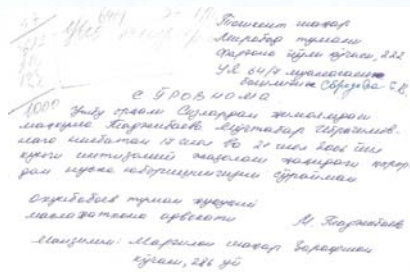 Тошкент шаҳар
Миробод тумани
Фарғона йўли кўчаси, 222
УЯ 64/7 муассасаси
бошлиғига
СЎРОВНОМА
1000
Ушбу орқали Сизлардан
маҳкума Тоджибаева Муҳтабар Иброҳимов-
нага нисбатан 17 июл ва 21 июл 2006 йил
интизомий жазолаш ҳақидаги қарор-
дан нусха юборишингизни сўрайман
Охунбобоев туман ҳуқуқий
маслаҳатхона адвокати
М. Тоджибаев
Манзилим: Марғилон шаҳар Зарафшон
кўчаси, 286 уй